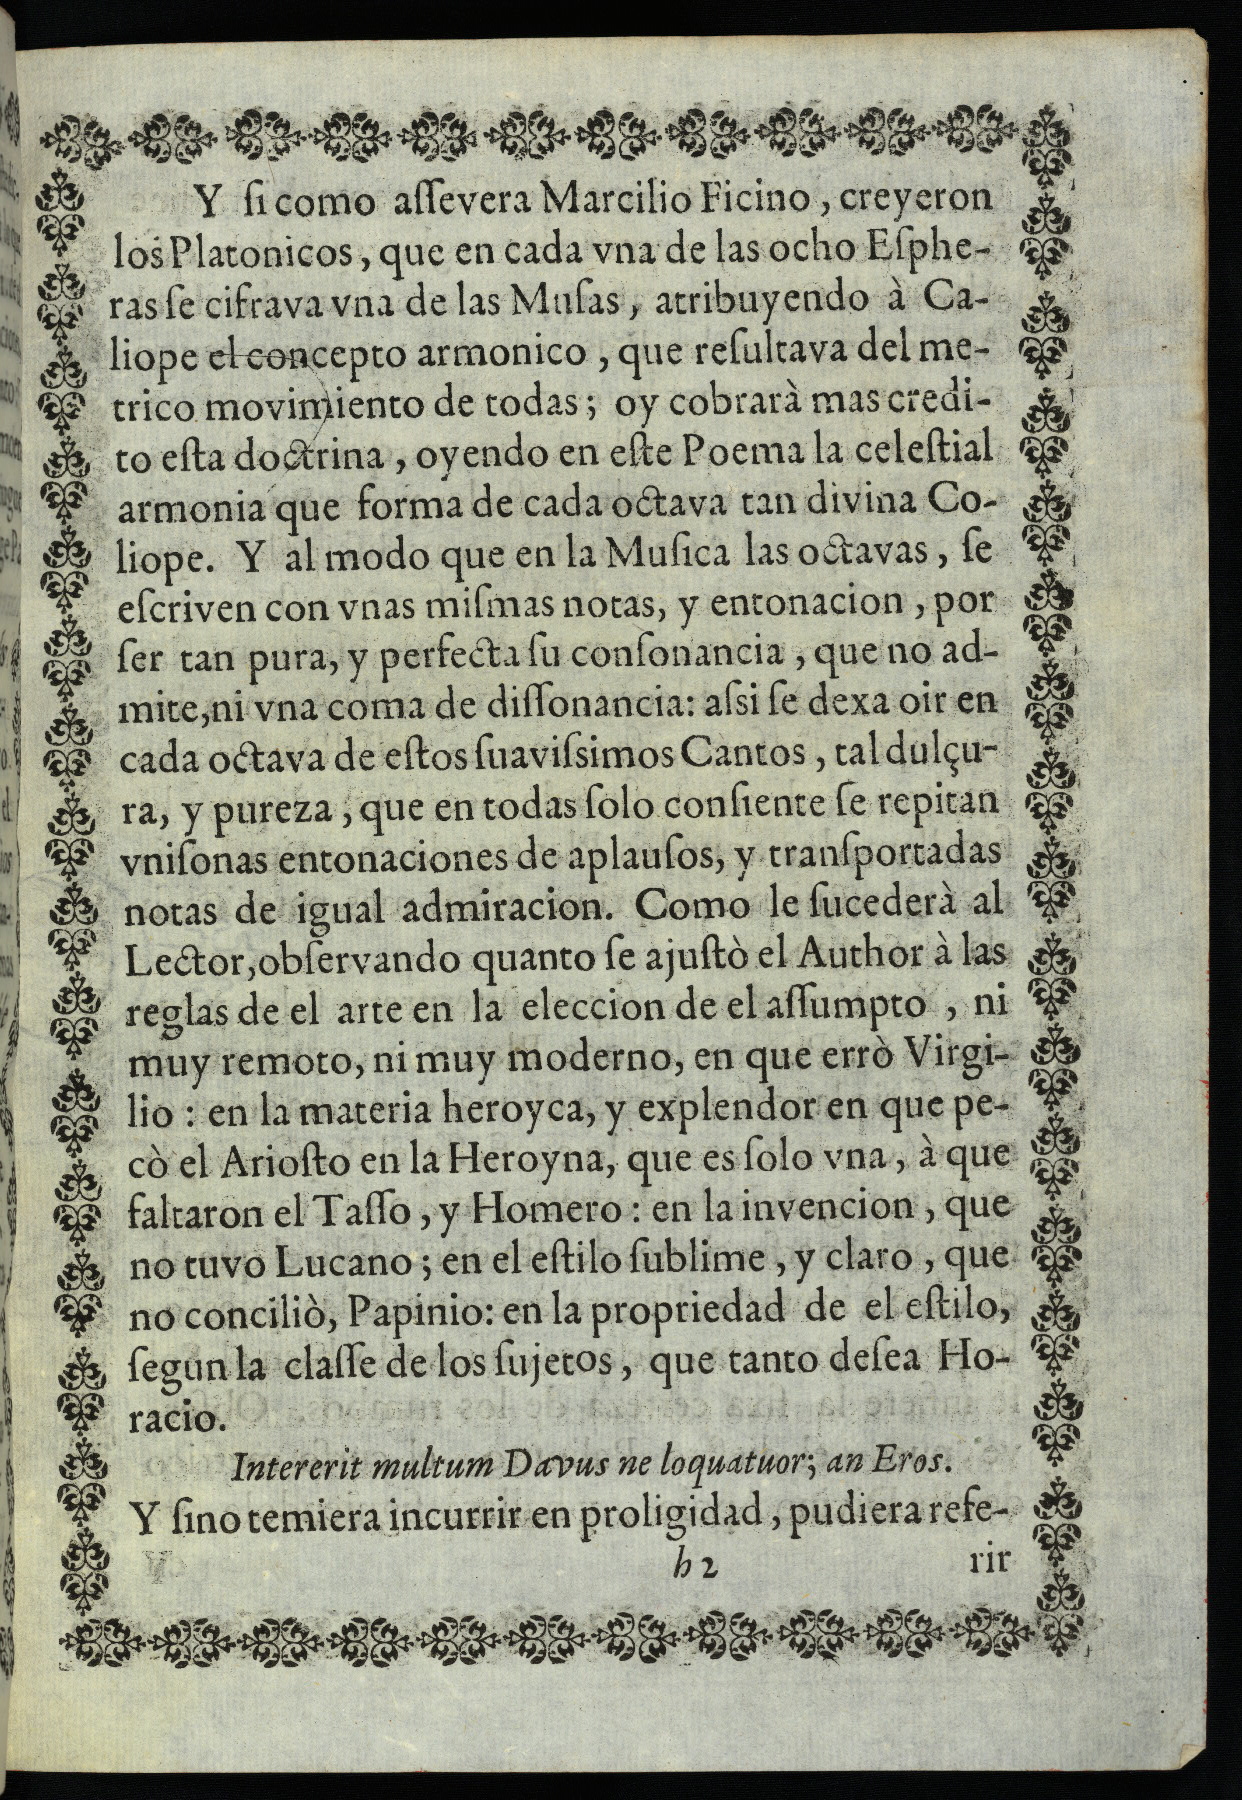 Y ſi como aſſevera Marcilio Ficino, creyeron
los Platonicos, que en cada vna de las ocho Eſphe-
ras ſe cifrava vna de las Muſas, atribuyendo à Ca-
liope el concepto armonico, que reſultava del me-
trico movimiento de todas; oy cobrarà mas credi-
to eſta doctrina, oyendo en eſte Poema la celeſtial
armonia que forma de cada octava tan divina Co-
liope. Y al modo que en la Muſica las octavas, ſe
eſcriven con vnas miſmas notas, y entonacion, por
ſer tan pura, y perfecta ſu conſonancia, que no ad-
mite,ni vna coma de diſſonancia: aſsi ſe dexa oir en
cada octava de eſtos ſuaviſsimos Cantos, tal dulçu-
ra, y pureza, que en todas ſolo conſiente ſe repitan
vniſonas entonaciones de aplauſos, y tranſportadas
notas de igual admiracion. Como le ſucederà al
Lector,obſervando quanto ſe ajuſtò el Author à las
reglas de el arte en la eleccion de el aſſumpto, ni
muy remoto, ni muy moderno, en que errò Virgi-
lio: en la materia heroyca, y explendor en que pe-
cò el Arioſto en la Heroyna, que es ſolo vna, à que
faltaron el Taſſo, y Homero: en la invencion, que
no tuvo Lucano; en el eſtilo ſublime, y claro, que
no conciliò, Papinio: en la propriedad de el eſtilo,
ſegun la claſſe de los ſujetos, que tanto deſea Ho-
racio.
Intererit multum Davus ne loquatuor; an Eros.
Y ſino temiera incurrir en proligidad, pudiera refe-
h 2 rir